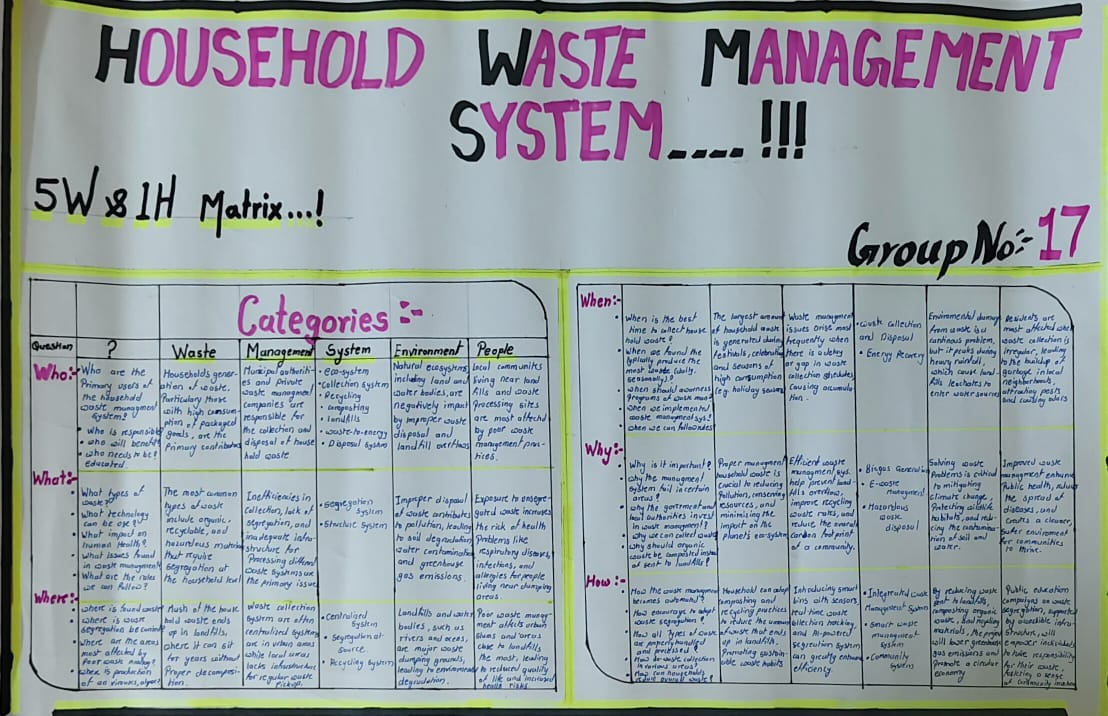 HOUSEHOLD WASTE MANAGEMENT
SYSTEM____!!!
5W & 1H Matrix...!
Group No:- 17
Categories :-
Question
?
Waste
Management
System
Environment
People
Who:-
Who are the
Primary users of
the household
waste managment
System?
who is responsible
who will benefit
who needs to be?
educated.
Households gener-
ation of waste,
Particulary those
with high consum-
ption of packaged
goods, are the
Primary contributors
Municipal authoriti-
es and private
waste managment
companies are
responsible for
the collection and
disposal of house
hold waste
eco-system
collection system
Recycling
composting
landfills
waste-to-energy
Disposal System
Natural ecosystems
including land and
water bodies, are
negatively impact
by improper waste
disposal and
landfill overflows
local communites
living near land
fills and waste
Processing sites
are most affected
by poor waste
management prac-
tices.
What:-
What types of
waste?
What technology
can be use?
What impact on
human Health?
What issues found
in waste managment
What are the rules
we can follow?
The most common
types of waste
include organic,
recyclable, and
hazardous
that require
Segregation at
the household level
Inefficiencies in
Collection, lack of
segregation, and
inadequate infra-
structure for
Processing different
waste Systems are
the primary issue
Segregation
System
Structure System
Improper disposal
of waste contributes
to pollution, leading
to soil degradation
water contamination
and greenhouse
gas emissions.
Exposure to unsegre-
gated waste increases
the risk of health
Problems like
respiratory diseases,
infections, and
allergies for people
living near dumping
areas.
Where:-
where is found waste
where is waste
segregation be
where are the areas
most affected by
Poor waste
where is production
of
Much of the house
hold waste ends
up in landfills,
where it can sit
for years without
Proper decomposi-
tion.
Waste collection
System are often
centralized System
in urban areas
while local areas
lacks infrastructure
for regular waste
Pickup.
Centralized
System
Segregation at
source.
Recycling System
Landfills and water
bodies, such as
rivers and oceans,
are major waste
dumping grounds,
leading to environmental
degradation.
Poor waste manag-
ment affects urban
slums and areas
close to landfills
The most, leading
to reduced quality
of life and increased
health risks.
When:-
When is the best
time to collect house
hold waste?
When we found the
produce the
most waste (daily,
seasonally)?
when should awarness
programs of waste
when we implemented
waste managment sys?
when we can
The largest amount
of household waste
is generated during
festivals, celebration
and seasons of
high consumption
(eg. holiday season)
Waste managment
issues arise most
frequently when
there is a delay
or gap in waste
collection schedules
Causing accumula-
tion.
Waste collection
and Disposal
Energy Recovery
Enviromental damage
from waste is a
continous problem,
but it peaks during
heavy rainfall,
which cause land-
fills leachates to
enter water sources
Residents are
most affected when
waste collection is
irregular, leading
to the buildup of
garbage in local
neighborhoods,
attracting pests
and causing odors
Why:-
Why is it important?
why the managment
System fail in certain
areas?
why the government and
local authorities invest
in waste managment?
why we can collect waste
why should organic
waste be composted instead
of sent to landfills?
Proper managment
household waste is
Crucial to reducing
Pollution, conserving
resources, and
minimising the
impact on the
planets ecosystem
Efficient waste
managment sys.
help prevent land-
fills overflow,
improve recycling
waste rates, and
reduce the overall
carbon footprint
of a community.
Biogas Generation
E-waste
managment
Hazardous
waste
disposal
Solving waste
Problems is critical
to mitigating
climate change,
Protecting wildlife
habitats, and redu-
cing the contamina-
tion of soil and
water.
Improved waste
managment enhances
Public health, reduces
the spread of
diseases, and
creates a cleaner,
Safer enviroment
for communities
to thrive.
How:-
How the waste managment
becomes automated?
How encourage to adopt
waste segregation?
How all Types of waste
are properly handled
and processed?
How do waste collection
in various areas?
How can households
reduce overall waste?
Household can adopt
composting and
recycling practices
to reduce the amount
of waste that ends
up in landfills
Promoting sustain-
able waste habits
Introducing smart
bins with sensors,
real time waste
collection tracking,
and AI-powered
segregation System
can greatly enhance
efficiency
Integrated waste
Managment System
Smart waste
managment
system
Community
System
By reducing waste
sent to landfills,
composting organic
waste, and recycling
materials, the project
will lower greenhouse
gas emissions and
Promote a circular
economy
Public education
campaigns on waste
segregation, supported
by accessible infra-
Structure, will
empower individuals
to take responsibility
for their waste,
fostering a sense
of community